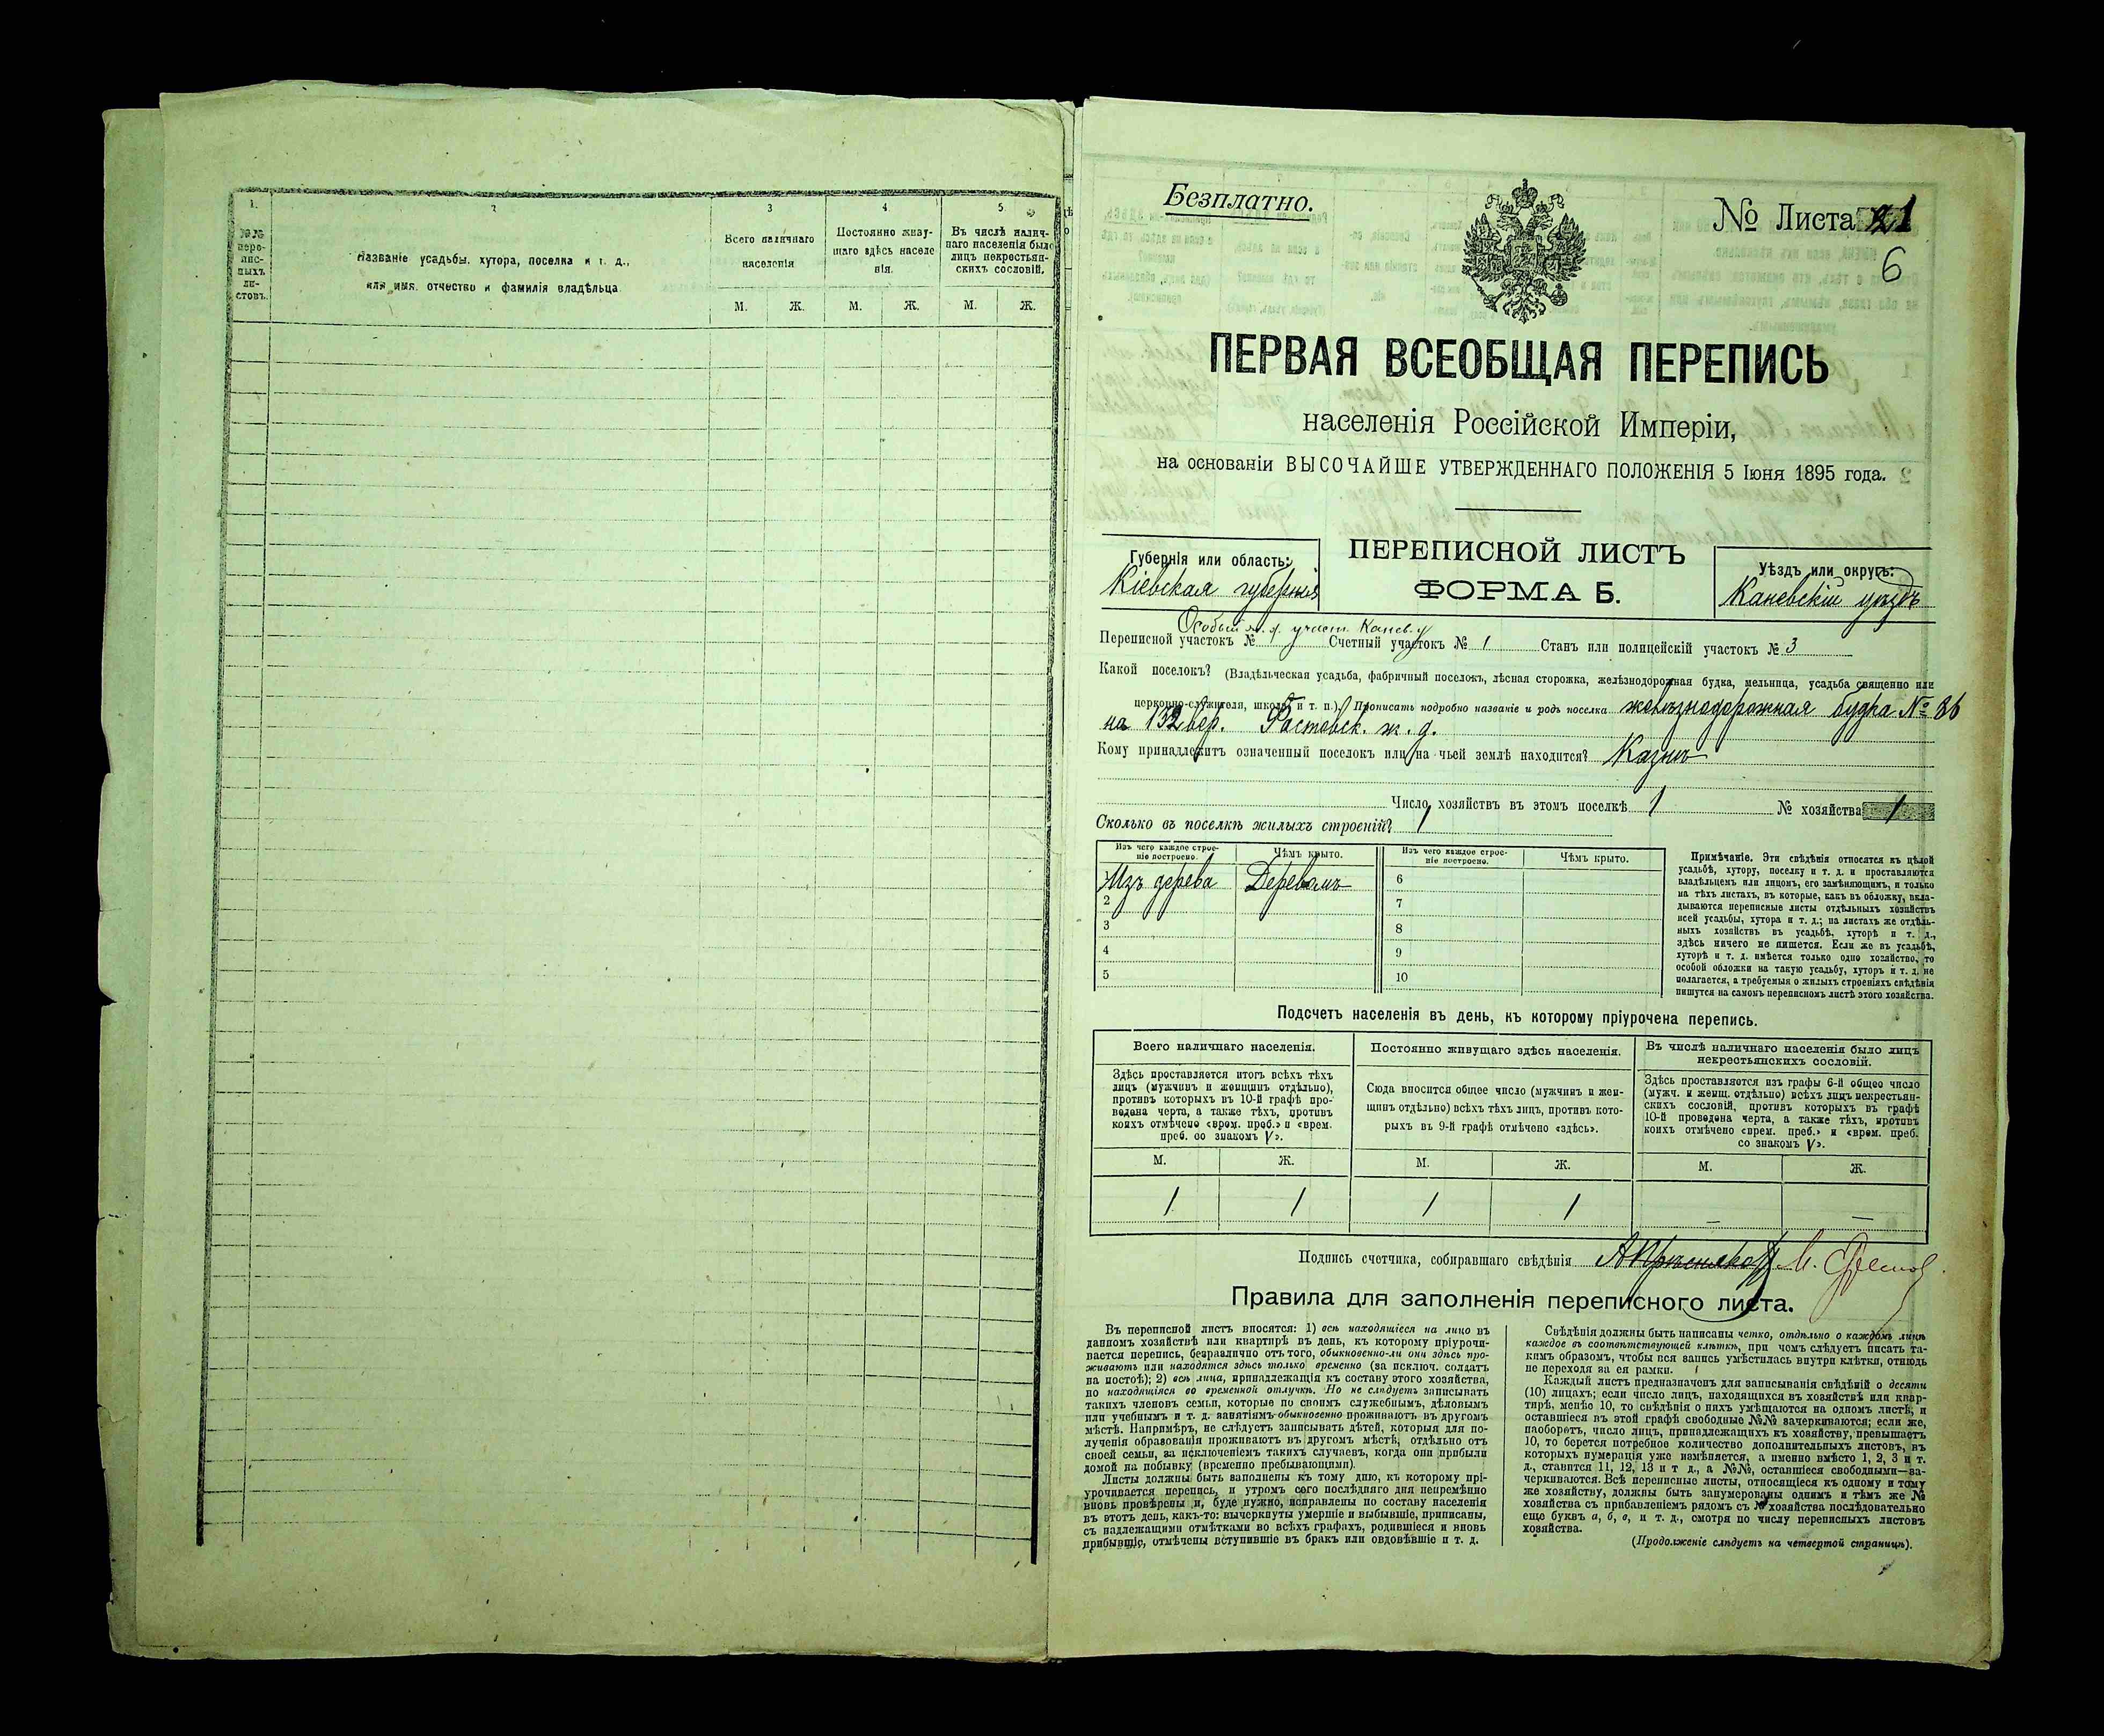 1.
2
3
4.
5.
№№ пере-
пис-
ныхъ
ли-
стовъ.
Названіе усадьбы, хутора, поселка и т. д.,
или имя, отчество и фамилія владѣльца
Всего наличнаго
населенія
Постоянно живу-
щаго здѣсь населе
нія.
Въ числѣ налич-
наго населенія было
лицъ некрестьян-
скихъ сословій.
М. Ж. М. Ж. М. Ж.
Безплатно.
№ Листа 1
6
ПЕРВАЯ ВСЕОБЩАЯ ПЕРЕПИСЬ
населенія Россійской Имперіи,
на основаніи ВЫСОЧАЙШЕ УТВЕРЖДЕННАГО ПОЛОЖЕНІЯ 5 Іюня 1895 года.
Губернія или область:
Кіевская губернія
ПЕРЕПИСНОЙ ЛИСТЪ
ФОРМА Б.
Уѣздъ или округъ:
Каневскій уѣздъ
Особый ж. д. участ. Канев. у
Переписной участокъ № Счетный участокъ № 1 Станъ или полицейскій участокъ № 3
Какой поселокъ? (Владѣльческая усадьба, фабричный поселокъ, лѣсная сторожка, желѣзнодорожная будка, мельница, усадьба священно или
церковно-служителя, школа и т. п.). Прописать подробно названіе и родъ поселка желѣзнодорожная будка № 86
на 132 вер. Фастовск. ж. д.
Кому принадлежитъ означенный поселокъ или на чьей землѣ находится? Казнѣ
Число хозяйствъ въ этомъ поселкѣ 1 № хозяйства 1
Сколько въ поселкѣ жилыхъ строеній? 1
Изъ чего каждое строе-
ніе построено.
Чѣмъ крыто.
Изъ чего каждое строе-
ніе построено.
Чѣмъ крыто.
Изъ дерева Деревомъ 6
2 7
3 8
4 9
5 10
Примѣчаніе. Эти свѣдѣнія относятся къ цѣлой
усадьбѣ, хутору, поселку и т. д. и проставляются
владѣльцемъ или лицомъ, его замѣняющимъ, и только
на тѣхъ листахъ, въ которые, какъ въ обложку, вкла-
дываются переписные листы отдѣльныхъ хозяйствъ
всей усадьбы, хутора и т. д.; на листахъ же отдѣль-
ныхъ хозяйствъ въ усадьбѣ, хуторѣ и т. д.,
здѣсь ничего не пишется. Если же въ усадьбѣ,
хуторѣ и т. д. имѣется только одно хозяйство, то
особой обложки на такую усадьбу, хуторъ и т. д. не
полагается, а требуемыя о жилыхъ строеніяхъ свѣдѣнія
пишутся на самомъ переписномъ листѣ этого хозяйства.
Подсчетъ населенія въ день, къ которому пріурочена перепись.
Всего наличнаго населенія.
Здѣсь проставляется итогъ всѣхъ тѣхъ
лицъ (мужчинъ и женщинъ отдѣльно),
противъ которыхъ въ 10-й графѣ про-
ведена черта, а также тѣхъ, противъ
коихъ отмѣчено «врем. преб.» и «врем.
преб. со знакомъ V».
Постоянно живущаго здѣсь населенія.
Сюда вносится общее число (мужчинъ и жен-
щинъ отдѣльно) всѣхъ тѣхъ лицъ, противъ кото-
рыхъ въ 9-й графѣ отмѣчено «здѣсь».
Въ числѣ наличнаго населенія было лицъ
некрестьянскихъ сословій.
Здѣсь проставляется изъ графы 6-й общее число
(мужч. и женщ. отдѣльно) всѣхъ лицъ некрестьян-
скихъ сословій, противъ которыхъ въ графѣ
10-й проведена черта, а также тѣхъ, противъ
коихъ отмѣчено «врем. преб.» и «врем. преб.
со знакомъ V».
М. Ж. М. Ж. М. Ж.
1 1 1 1 — —
Подпись счетчика, собиравшаго свѣдѣнія
Правила для заполненія переписного листа.
Въ переписной листъ вносятся: 1) всѣ находящіеся на лицо въ
данномъ хозяйствѣ или квартирѣ въ день, къ которому пріурочи-
вается перепись, безразлично отъ того, обыкновенно-ли они здѣсь про-
живаютъ или находятся здѣсь только временно (за исключ. солдатъ
на постоѣ); 2) всѣ лица, принадлежащія къ составу этого хозяйства,
но находящіяся во временной отлучкѣ. Но не слѣдуетъ записывать
такихъ членовъ семьи, которые по своимъ служебнымъ, дѣловымъ
или учебнымъ и т. д. занятіямъ обыкновенно проживаютъ въ другомъ
мѣстѣ. Напримѣръ, не слѣдуетъ записывать дѣтей, которыя для по-
лученія образованія проживаютъ въ другомъ мѣстѣ, отдѣльно отъ
своей семьи, за исключеніемъ такихъ случаевъ, когда они прибыли
домой на побывку (временно пребывающими).
Листы должны быть заполнены къ тому дню, къ которому прі-
урочивается перепись, и утромъ сего послѣдняго дня непремѣнно
вновь провѣрены и, буде нужно, исправлены по составу населенія
въ этотъ день, какъ-то: вычеркнуты умершіе и выбывшіе, приписаны,
съ надлежащими отмѣтками во всѣхъ графахъ, родившіеся и вновь
прибывшіе, отмѣчены вступившіе въ бракъ или овдовѣвшіе и т. д.
Свѣдѣнія должны быть написаны четко, отдѣльно о каждомъ лицѣ
каждое въ соотвѣтствующей клѣткѣ, при чемъ слѣдуетъ писать та-
кимъ образомъ, чтобы вся запись умѣстилась внутри клѣтки, отнюдь
не переходя за ея рамки.
Каждый листъ предназначенъ для записыванія свѣдѣній о десяти
(10) лицахъ; если число лицъ, находящихся въ хозяйствѣ или квар-
тирѣ, менѣе 10, то свѣдѣнія о нихъ умѣщаются на одномъ листѣ, и
оставшіеся въ этой графѣ свободные №№ зачеркиваются; если же,
наоборотъ, число лицъ, принадлежащихъ къ хозяйству, превышаетъ
10, то берется потребное количество дополнительныхъ листовъ, въ
которыхъ нумерація уже измѣняется, а именно вмѣсто 1, 2, 3 и т.
д., ставится 11, 12, 13 и т д., а №№, оставшіеся свободными—за-
черкиваются. Всѣ переписные листы, относящіеся къ одному и тому
же хозяйству, должны быть занумерованы однимъ и тѣмъ же №
хозяйства съ прибавленіемъ рядомъ съ № хозяйства послѣдовательно
еще буквъ а, б, в, и т. д., смотря по числу переписныхъ листовъ
хозяйства.
(Продолженіе слѣдуетъ на четвертой страницѣ).